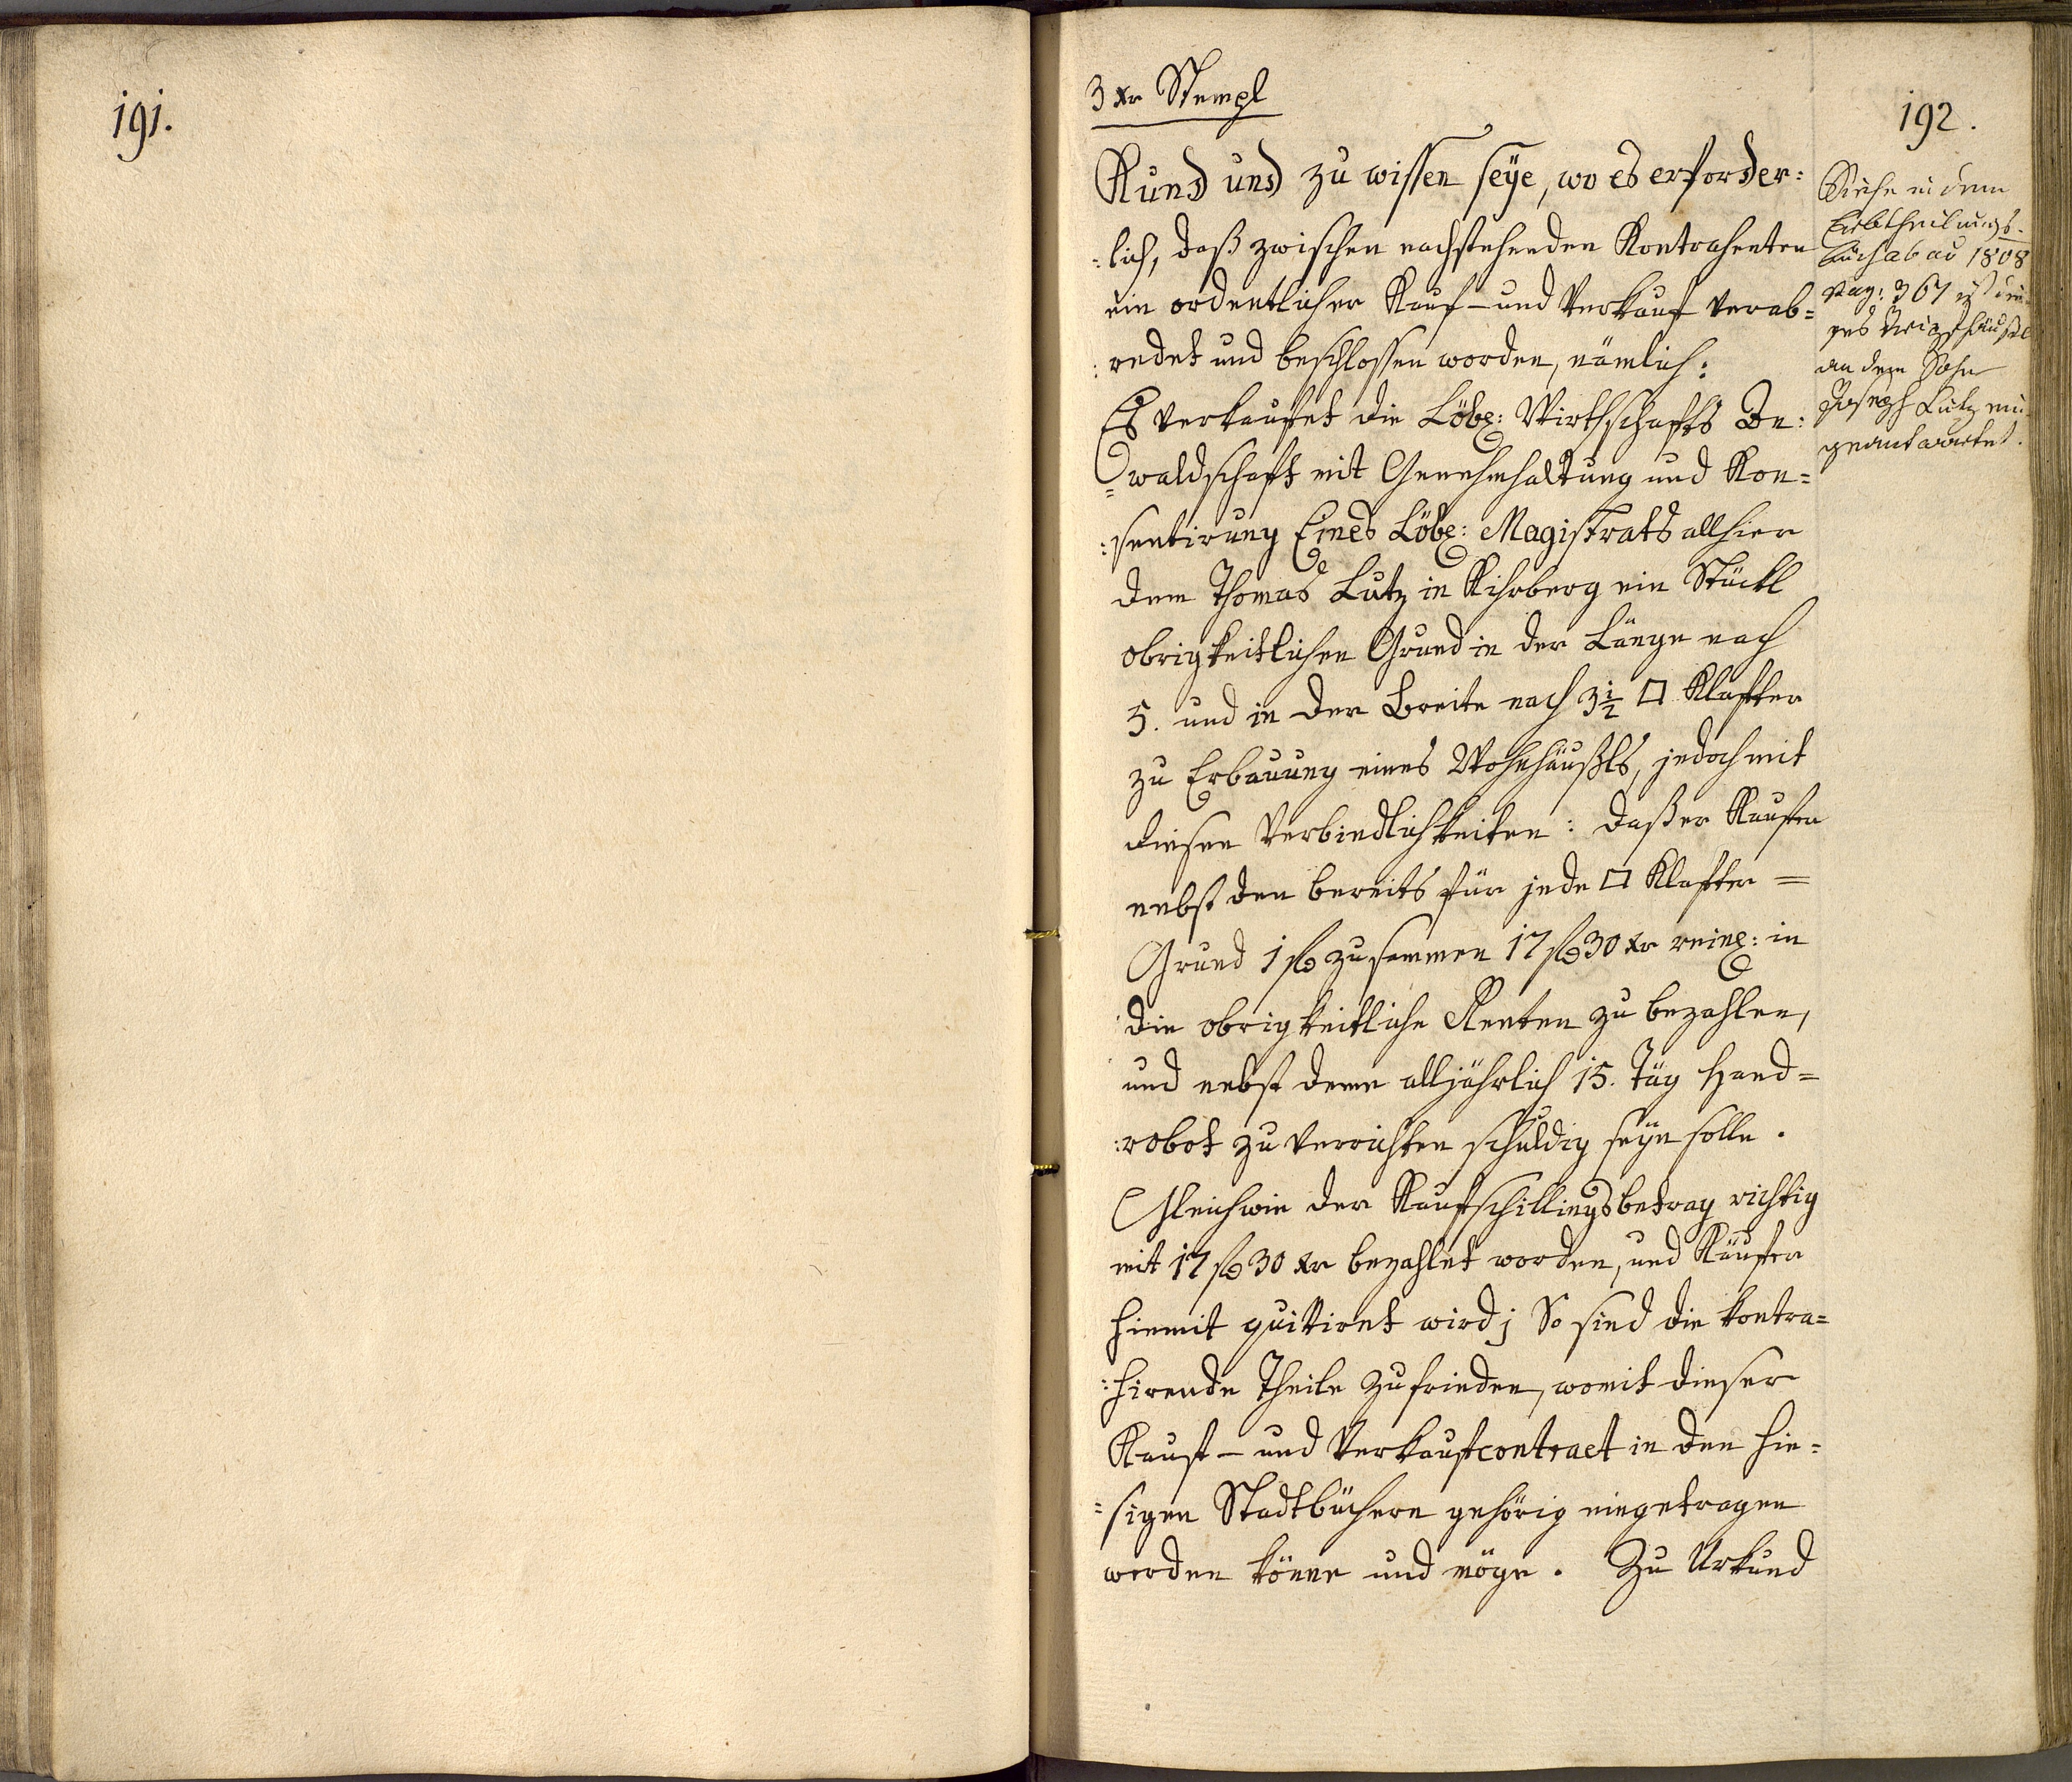 191.
3 Xr Stempl
192.
Kund und zu wissen seÿe, wo es erforder:
:lich, daß zwischen nachstehenden Kontrahenten
ein ordentlicher Kauf- und Verkauf verab=
:redet und beschlossen worden, nämlich:
Es verkaufet die Löbl: Wirthschafts Be:
=waldschaft mit Genehmhaltung und Kon=
:sentirung Eines Löbl: Magistrats allhier
dem Thomas Lutz in Kihrberg ein Stückl
obrigkeitlichen Grund in der Länge nach
5. und in der Breite nach 3½ □ Klafter
zu Erbauung eines Wohnhäußls, jedoch mit
diesen Verbindlichkeiten: daß er Kaufer
nebst den bereits für jede □ Klafter =
Grund 1 fl zusammen 17 fl 30 Xr reinl: in
die obrigkeitliche Renten zu bezahlen,
und nebst deme alljährlich 15. Täg Hand=
:robot zu verrichten schuldig seÿn solle.
Gleichwie der Kaufschillingsbetrag richtig
mit 17 fl 30 Xr bezahlet worden, und Käufer
hiemit quittiret wird; So sind die kontra=
:hirende Theile zufrieden, womit dieser
Kauf- und Verkaufcontract in den hie=
=sigen Stadtbüchern gehörig eingetragen
werden könne und möge. Zu Urkund
Siehe in dem
Erbtheilungs-
buch ab ao 1808
pag: 367 ist die-
ses
an dem Sohn
Joseph Lutz ein-
geantwortet.